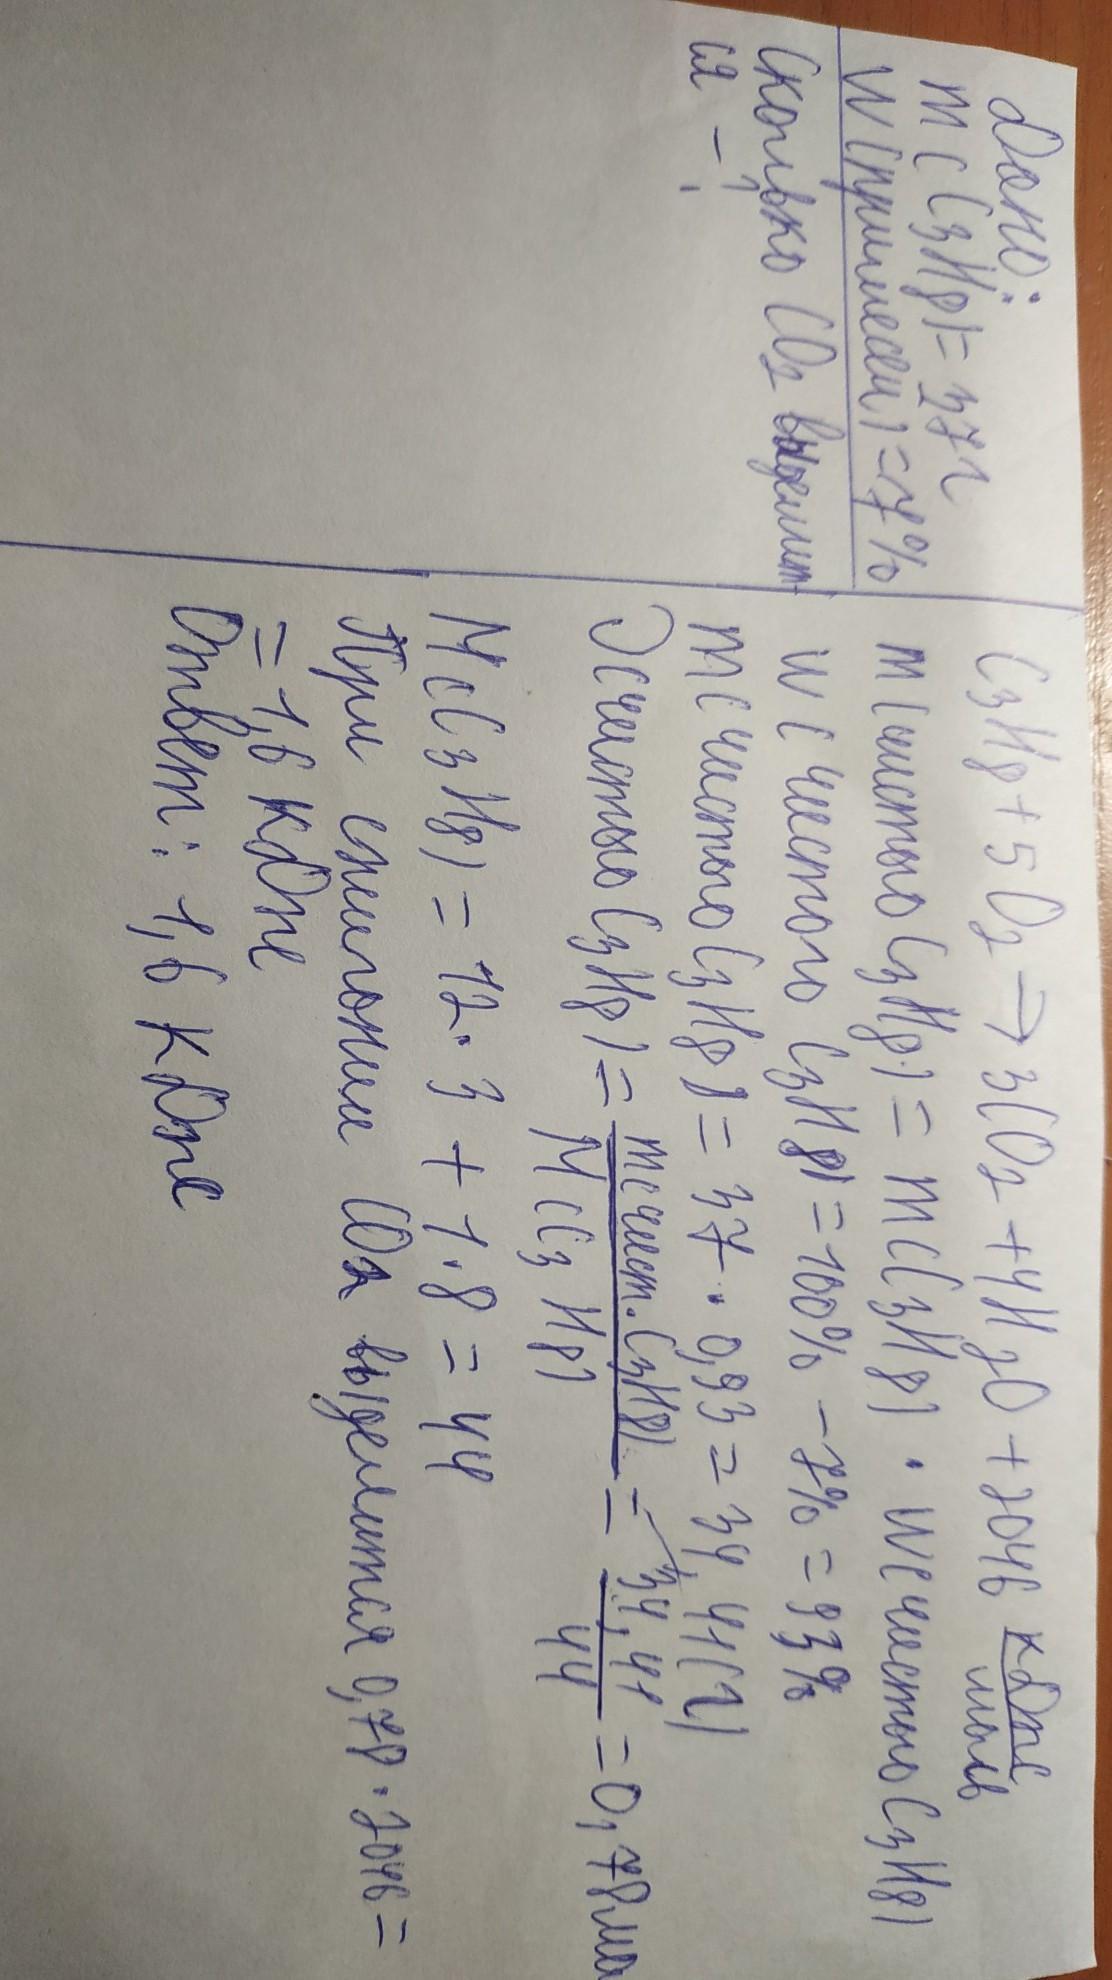 Дано:
m(C3H8)=37г
W(примесей)=7%
Сколько CO2 выделит-
ся - ?
C3H8+5O2→3CO2+4H2O+2046 кДж/моль
m(чистого C3H8)=m(C3H8)·W(чистого C3H8)
W(чистого C3H8)=100%-7%=93%
m(чистого C3H8)=37·0,93=34,41(г)
(чистого C3H8)=m(чист.C3H8)/M(C3H8)=34,41/44=0,78мо
M(C3H8)=12·3+1·8=44
При сжигании CO2 выделится 0,78·2046=
=1,6 кДж
Ответ: 1,6 кДж